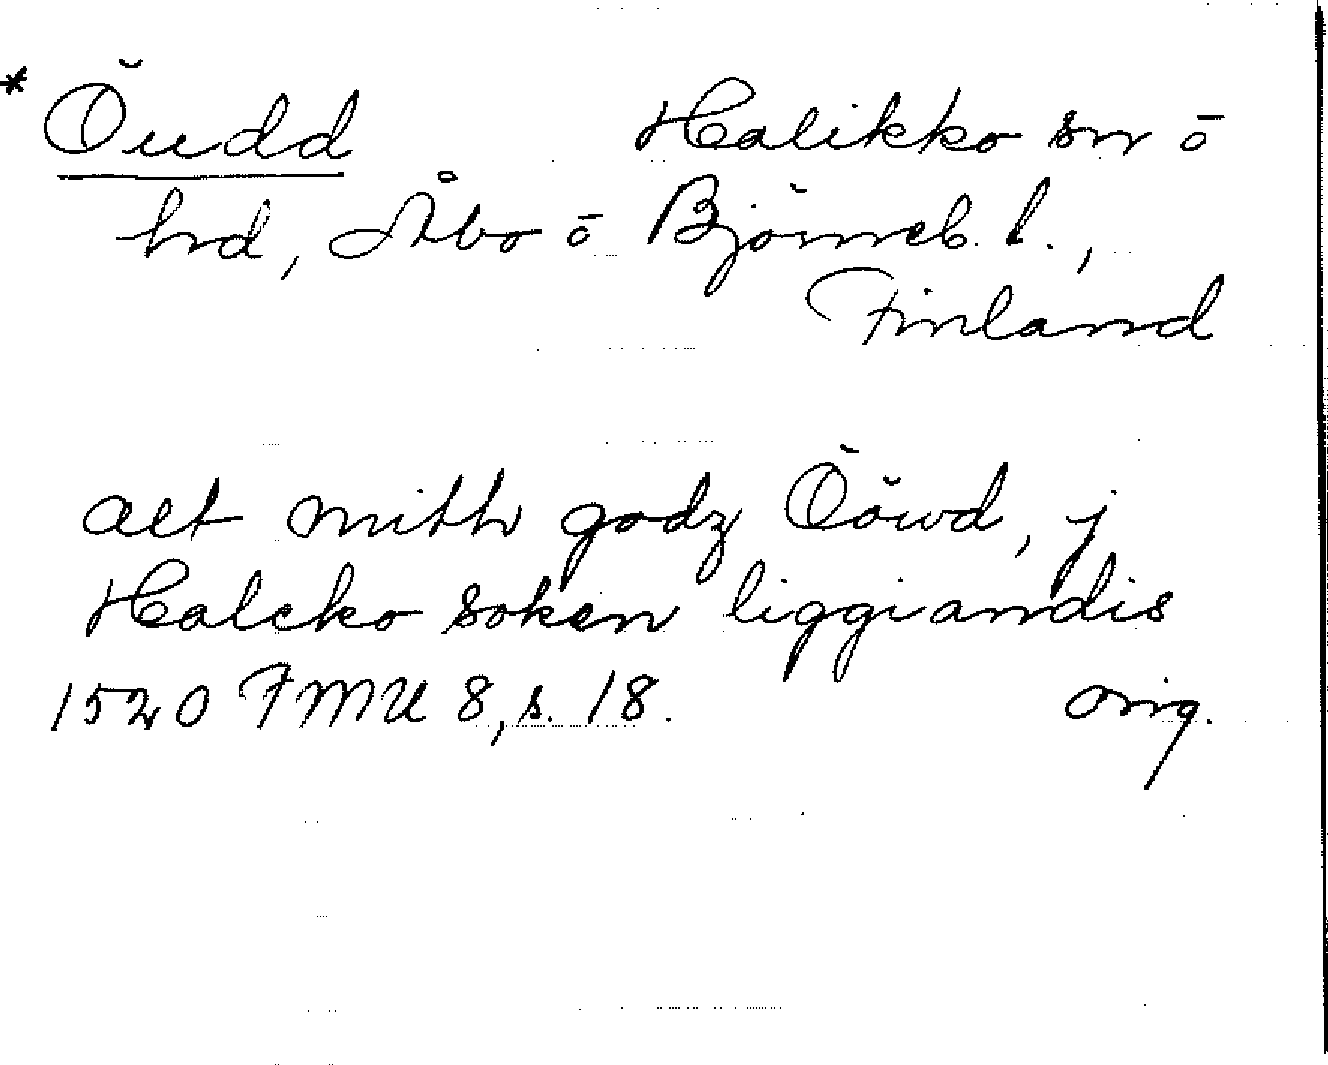 * Öudd Halikko sn ō
hd, Åbo ō Björneb. l.,
Finland
alt mith godz Ööwd, j
Halcko soken liggiandis
1520 FMU 8, s. 18. orig.